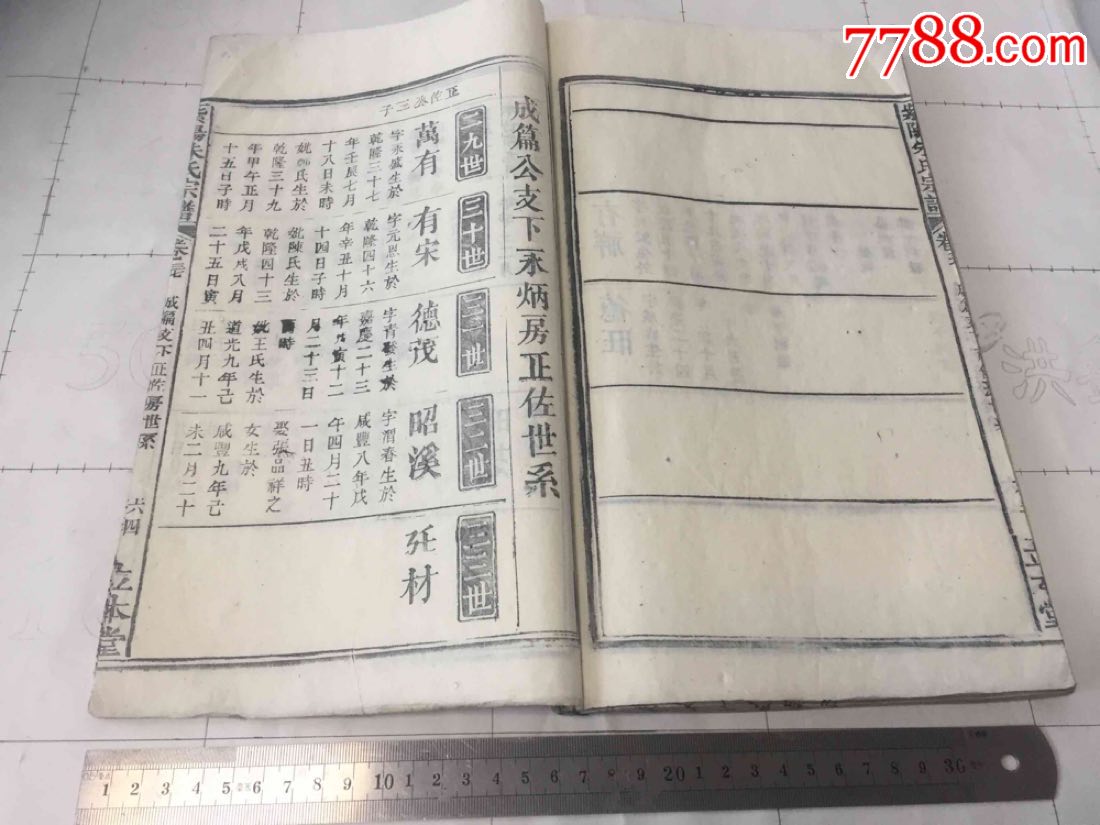 7788.com
成篇公支下永炳房正佐世系
二九世
三十世
世
世
世
正佐公三子
萬有
字永盛生於
乾隆三十七
年壬辰七月
十八日未時
氏生於
乾隆三十九
年甲午正月
十五日子時
有宋
字元恩生於
乾隆四十六
年辛丑十月
十四日子時
妣陳氏生於
乾隆四十三
年戊戌八月
二十五日寅
德茂
字青發生於
嘉慶二十三
年戊寅十二
月二十三日
時
妣王氏生於
道光九年己
丑四月十一
昭溪
字渭春生於
咸豐八年戊
午四月二十
一日丑時
娶張品祥之
女生於
咸豐九年己
未二月二十
材
紫陽朱氏宗譜
成篇支下正佐房世系
六四
立本堂
紫陽朱氏宗譜
堂
1 2 3 4 5 6 7 8 9 10 1 2 3 4 5 6 7 8 9 20 1 2 3 4 5 6 7 8 9 30